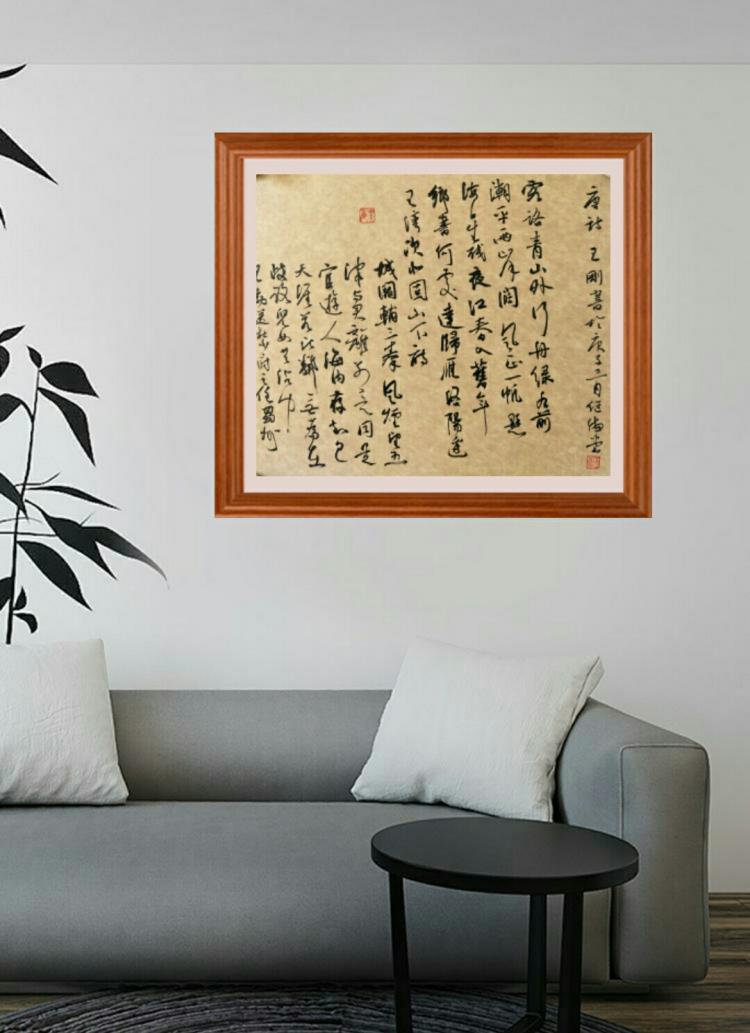 唐詩 王剛書於庚子二月
客路青山外行舟綠水前
潮平兩岸闊風正一帆懸
海日生殘夜江春入舊年
鄉書何處達歸雁洛陽邊
王灣次北固山下詩
城闕輔三秦風煙望五
津與君離別意同是
宦遊人海內存知己
天涯若比鄰無為在
歧路兒女共沾巾
王勃送杜少府之任蜀州